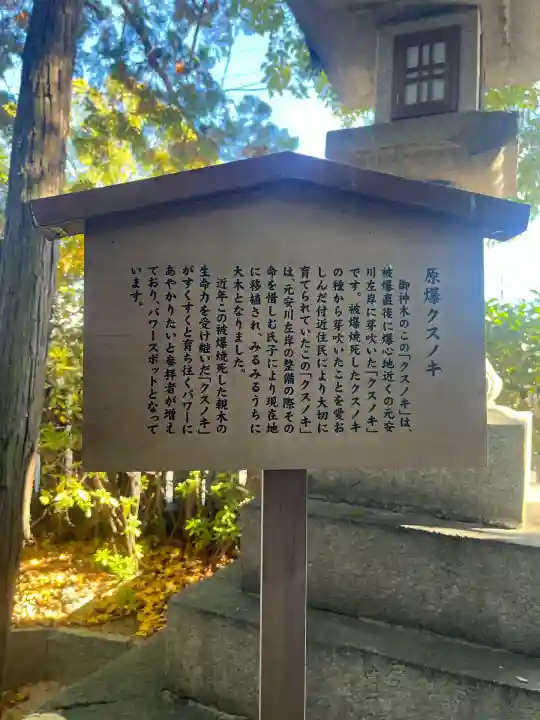 原爆クスノキ
御神木のこの「クスノキ」は、
被爆直後に爆心地近くの元安
川左岸に芽吹いた「クスノキ」
です。被爆焼死したクスノキ
の種から芽吹いたことを愛お
しんだ付近住民により大切に
育てられていたこの「クスノキ」
は、元安川左岸の整備の際その
命を惜しむ氏子により現在地
に移植され、みるみるうちに
大木となりました。
近年この被爆焼死した親木の
生命力を受け継いだ「クスノキ」
がすくすくと育ち往くパワーに
あやかりたいと参拝者が増え
ており、パワースポットとなって
います。